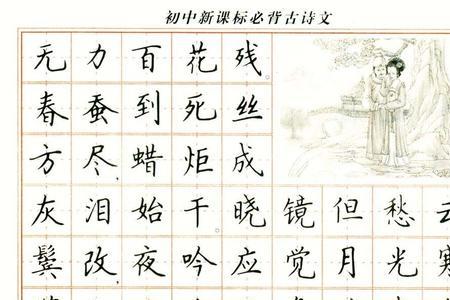 初中新课标必背古诗文
无力百花残。
春蚕到死丝
方尽,蜡炬成
灰泪始干。晓镜但愁云
鬓改,夜吟应觉月光寒